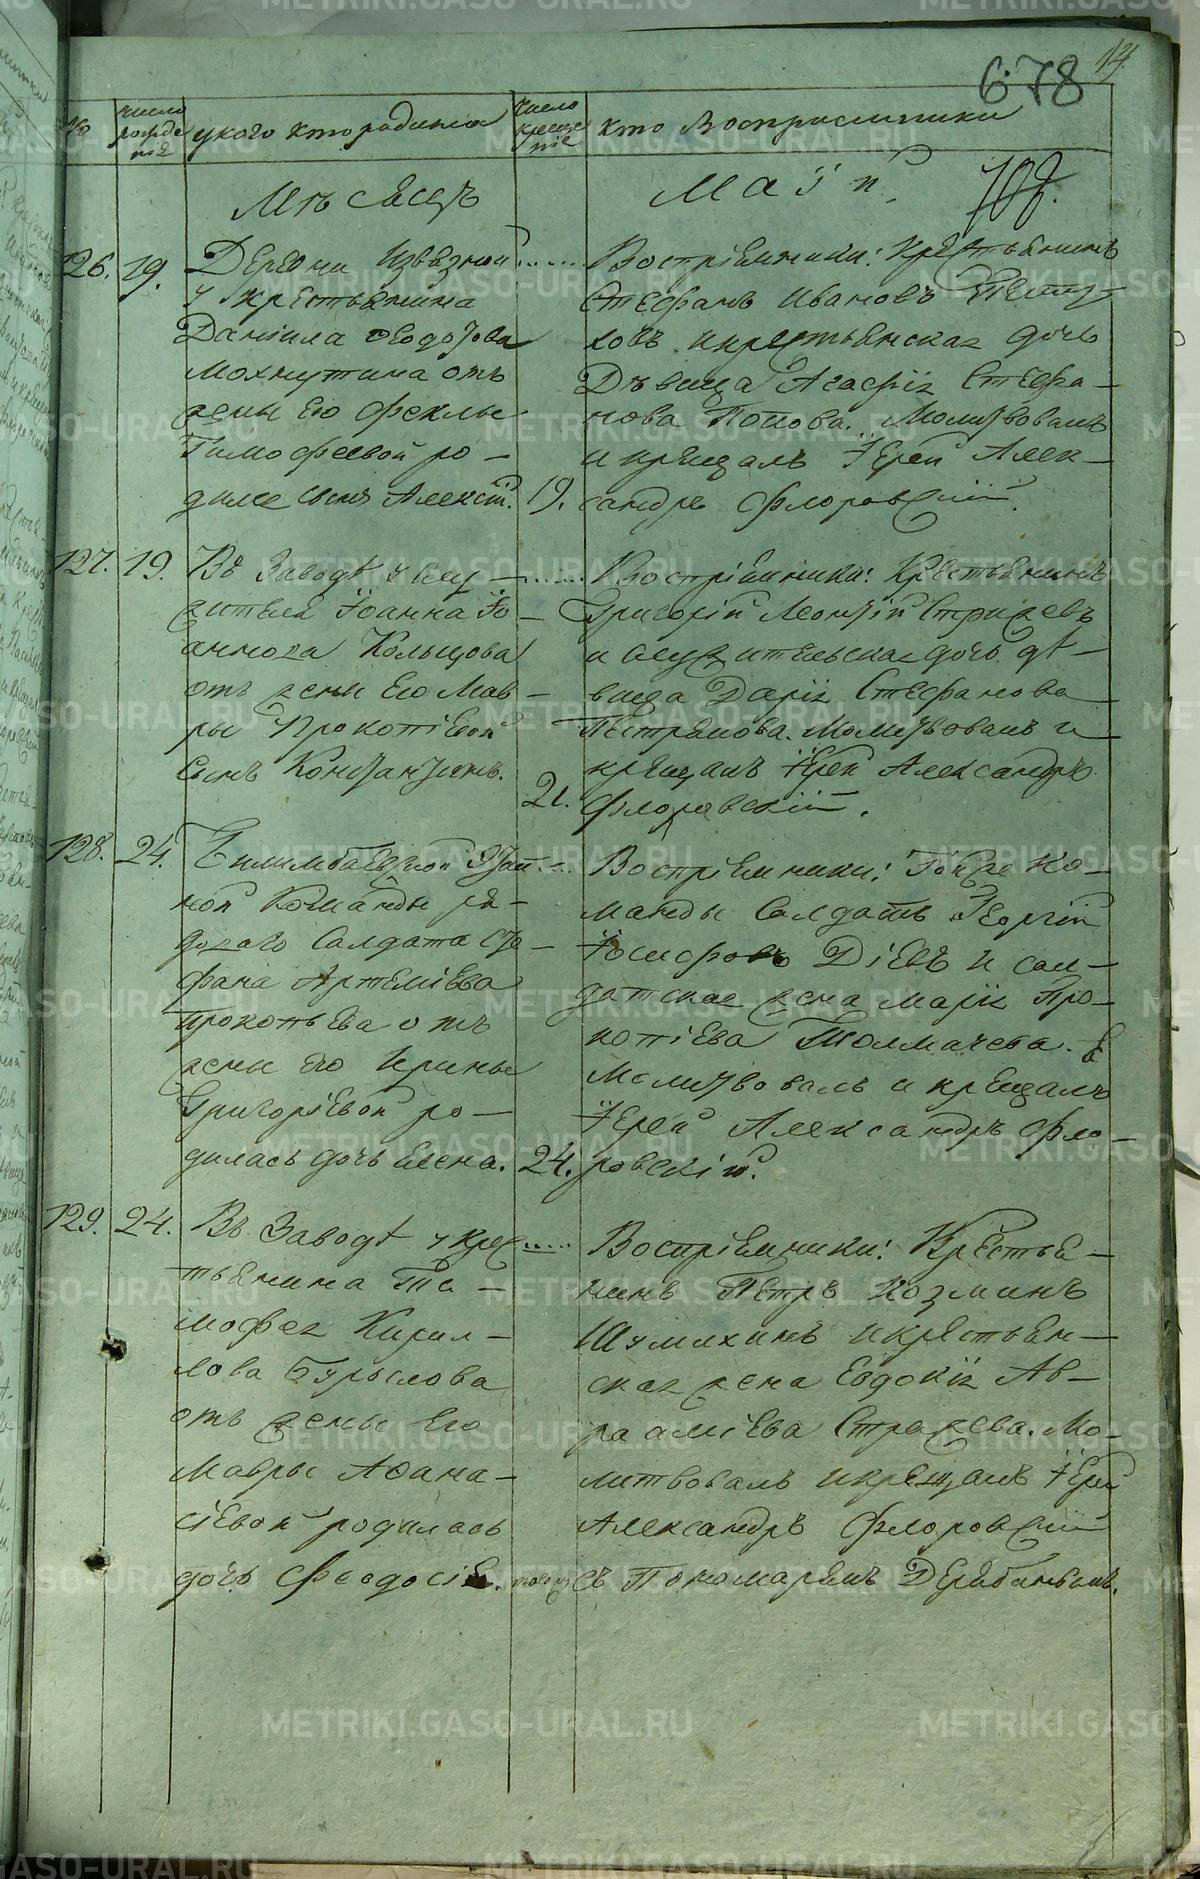 678
14
№
число рожде ніе
у кого кто родился
число креще ніе
кто Восприемники
Мѣсецъ
Маій
126.
19.
Деревни Извезной
у Крестьянина
Даніила Ѳеодотова
Мохнутина отъ
жены Его Феклы
Тимофеевой ро-
дился сынъ Алексій.
19.
Воспріемники: Крестьянинъ
Стефанъ Ивановъ
ковъ и крестьянская дочь
Дѣвица Агафія Стефа-
нова Попова. Молитвовалъ
и крещалъ Іерей Алек-
сандръ Флоровскій.
127.
19.
Въ Заводѣ у слу-
жителя Іоанна Іо-
аннова Кольцова
отъ жены Его Мав-
ры Прокопіевой
сынъ Константинъ.
21.
Воспріимники: Крестьянинъ
Григорій Леонтій Стражевъ
и служительская дочь дѣ-
вица Дарія Стефанова
Пестрякова. Молитвовалъ и
крещалъ Іерей Александръ
Флоровскій.
128.
24.
Билимбаевской Этап-
ной Команды ря-
доваго Салдата Сте-
фана Артеміева
Прокопьева отъ
жены Его Ирины
Григоріевой ро-
дилась дочь Елена.
24.
Воспріемники: Той же Ко-
манды Салдатъ Георгій
Іосифовъ Діевъ и сал-
датская жена Марія Про-
копіева Толмачева.
Молитвовалъ и крещалъ
Іерей Александръ Фло-
ровскій.
129.
24.
Въ Заводѣ у Крес-
тьянина Ти-
мофея Кирил-
лова Бурылова
отъ жены Его
Мавры Афана-
сіевой родилась
дочь Феодосія.
Воспріемники: Крестья-
нинъ Петръ Козминъ
Шумихинъ и крестьян-
ская жена Евдокія Ав-
рааміева Стражева. Мо-
литвовалъ и крещалъ Іерей
Александръ Флоровскій
съ Пономаремъ Дерябинымъ.